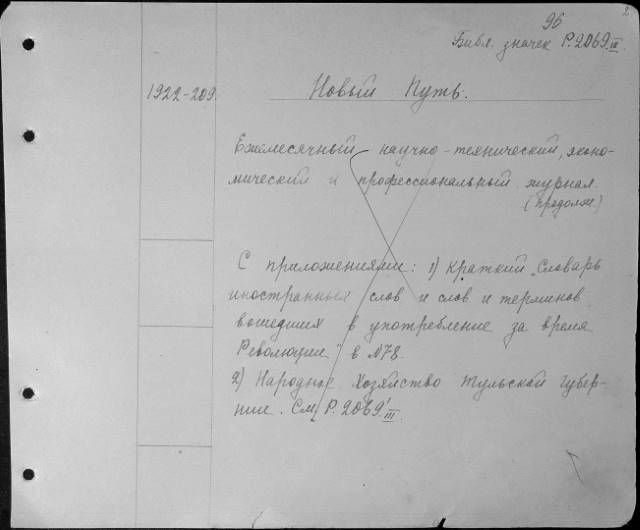 2
96
Библ. значек Р.2069.III.
1922-209.
Новый Путь.
Ежемесячный научно-технический, эконо-
мический и профессиональный журнал.
(продолж.)
С приложениями: 1) Краткий „Словарь
иностранных слов и слов и терминов
вошедших в употребление за время
Революции" в №78.
2) Народное Хозяйство Тульской Губер-
нии. См. Р. 2069.III.